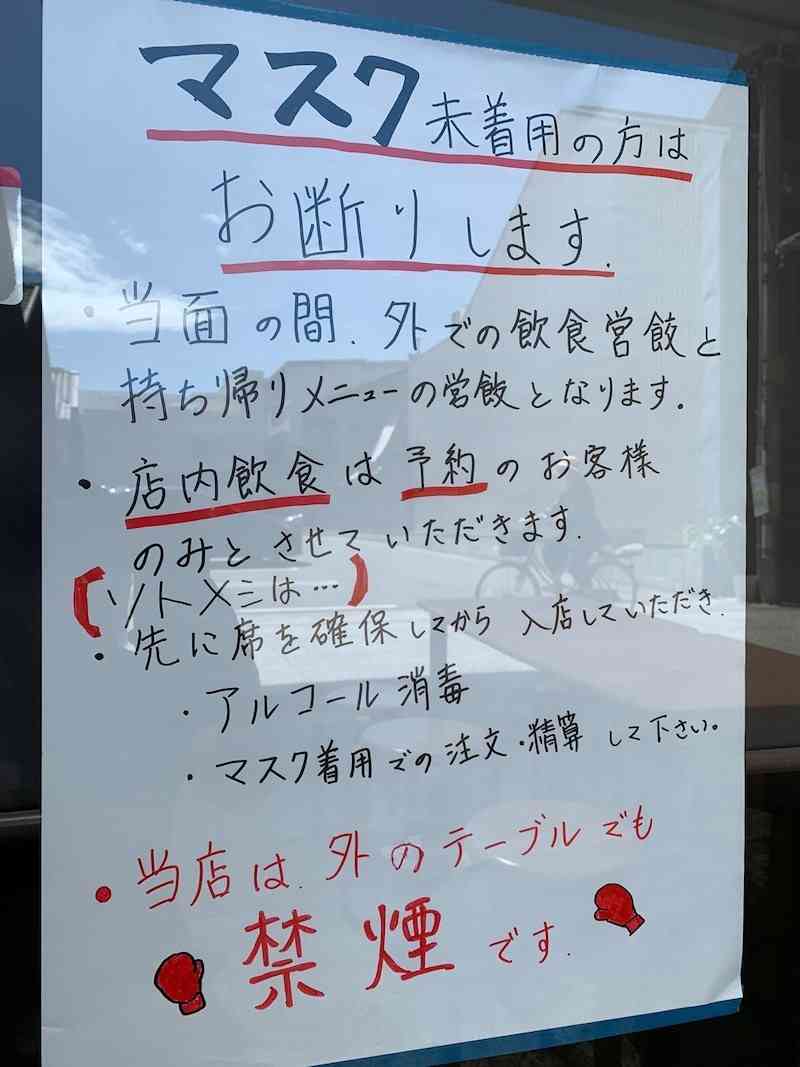 マスク未着用の方は
お断りします.
・当面の間.外での飲食営飯と
持ち帰りメニューの営飯となります。
・店内飲食は予約のお客様
のみとさせていただきます.
(ソトメシは…)
・先に席を確保してから 入店していただき.
・アルコール消毒
・マスク着用での注文・精算して下さい。
・当店は.外のテーブルでも
禁煙です.